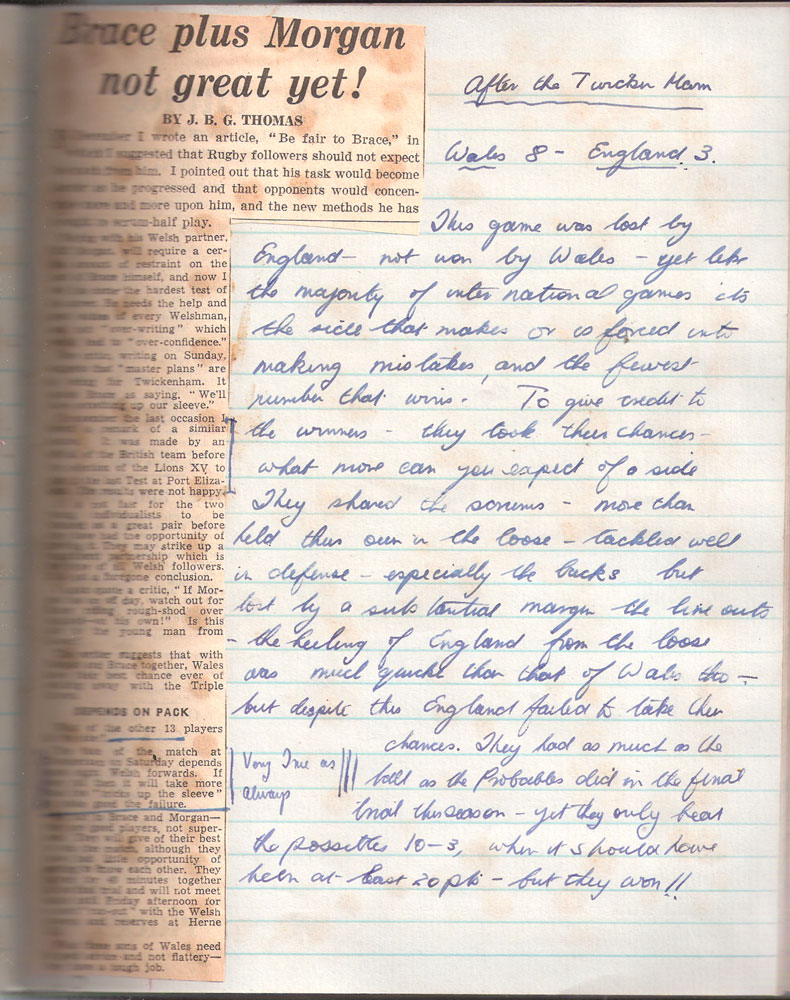 Brace plus Morgan
not great yet!
BY J. B. G. THOMAS
I wrote an article, "Be fair to Brace," in
suggested that Rugby followers should not expect
from him. I pointed out that his task would become
as he progressed and that opponents would concen-
and more upon him, and the new methods he has
scrum-half play.
with his Welsh partner,
will require a cer-
of restraint on the
himself, and now I
the hardest test of
needs the help and
of every Welshman,
"over-writing" which
to "over-confidence."
writing on Sunday,
that "master plans" are
for Twickenham. It
Brace is saying, "We'll
up our sleeve."
the last occasion I
remark of a similar
It was made by an
of the British team before
of the Lions XV to
Test at Port Eliza-
results were not happy.
not fair for the two
individualists to be
as a great pair before
had the opportunity of
They may strike up a
partnership which is
of all Welsh followers.
a foregone conclusion.
a critic, "If Mor-
of day, watch out for
rough-shod over
his own!" Is this
the young man from
suggests that with
and Brace together, Wales
best chance ever of
away with the Triple
DEPENDS ON PACK
of the other 13 players
of the match at
on Saturday depends
Welsh forwards. If
it will take more
tricks up the sleeve"
good the failure.
Brace and Morgan—
good players, not super-
will give of their best
although they
little opportunity of
know each other. They
minutes together
trial and will not meet
Friday afternoon for
with the Welsh
reserves at Herne
sons of Wales need
and not flattery—
a tough job.
After the Twicken Ham
Wales 8 - England 3.
This game was lost by
England - not won by Wales - yet like
the majority of inter national games its
the side that makes or is forced into
making mistakes, and the fewest
number that wins. To give credit to
the winners - they took their chances -
what more can you expect of a side
They shared the scrums - more than
held their own in the loose - tackled well
in defense - especially the backs but
lost by a substantial margin the line outs
- the heeling of England from the loose
was much quicker than that of Wales too -
but despite this England failed to take their
chances. They had as much as the
ball as the Probables did in the final
trial this season - yet they only beat
the possibles 10-3, when it should have
been at least 20 pts - but they won!!
Very True as
always